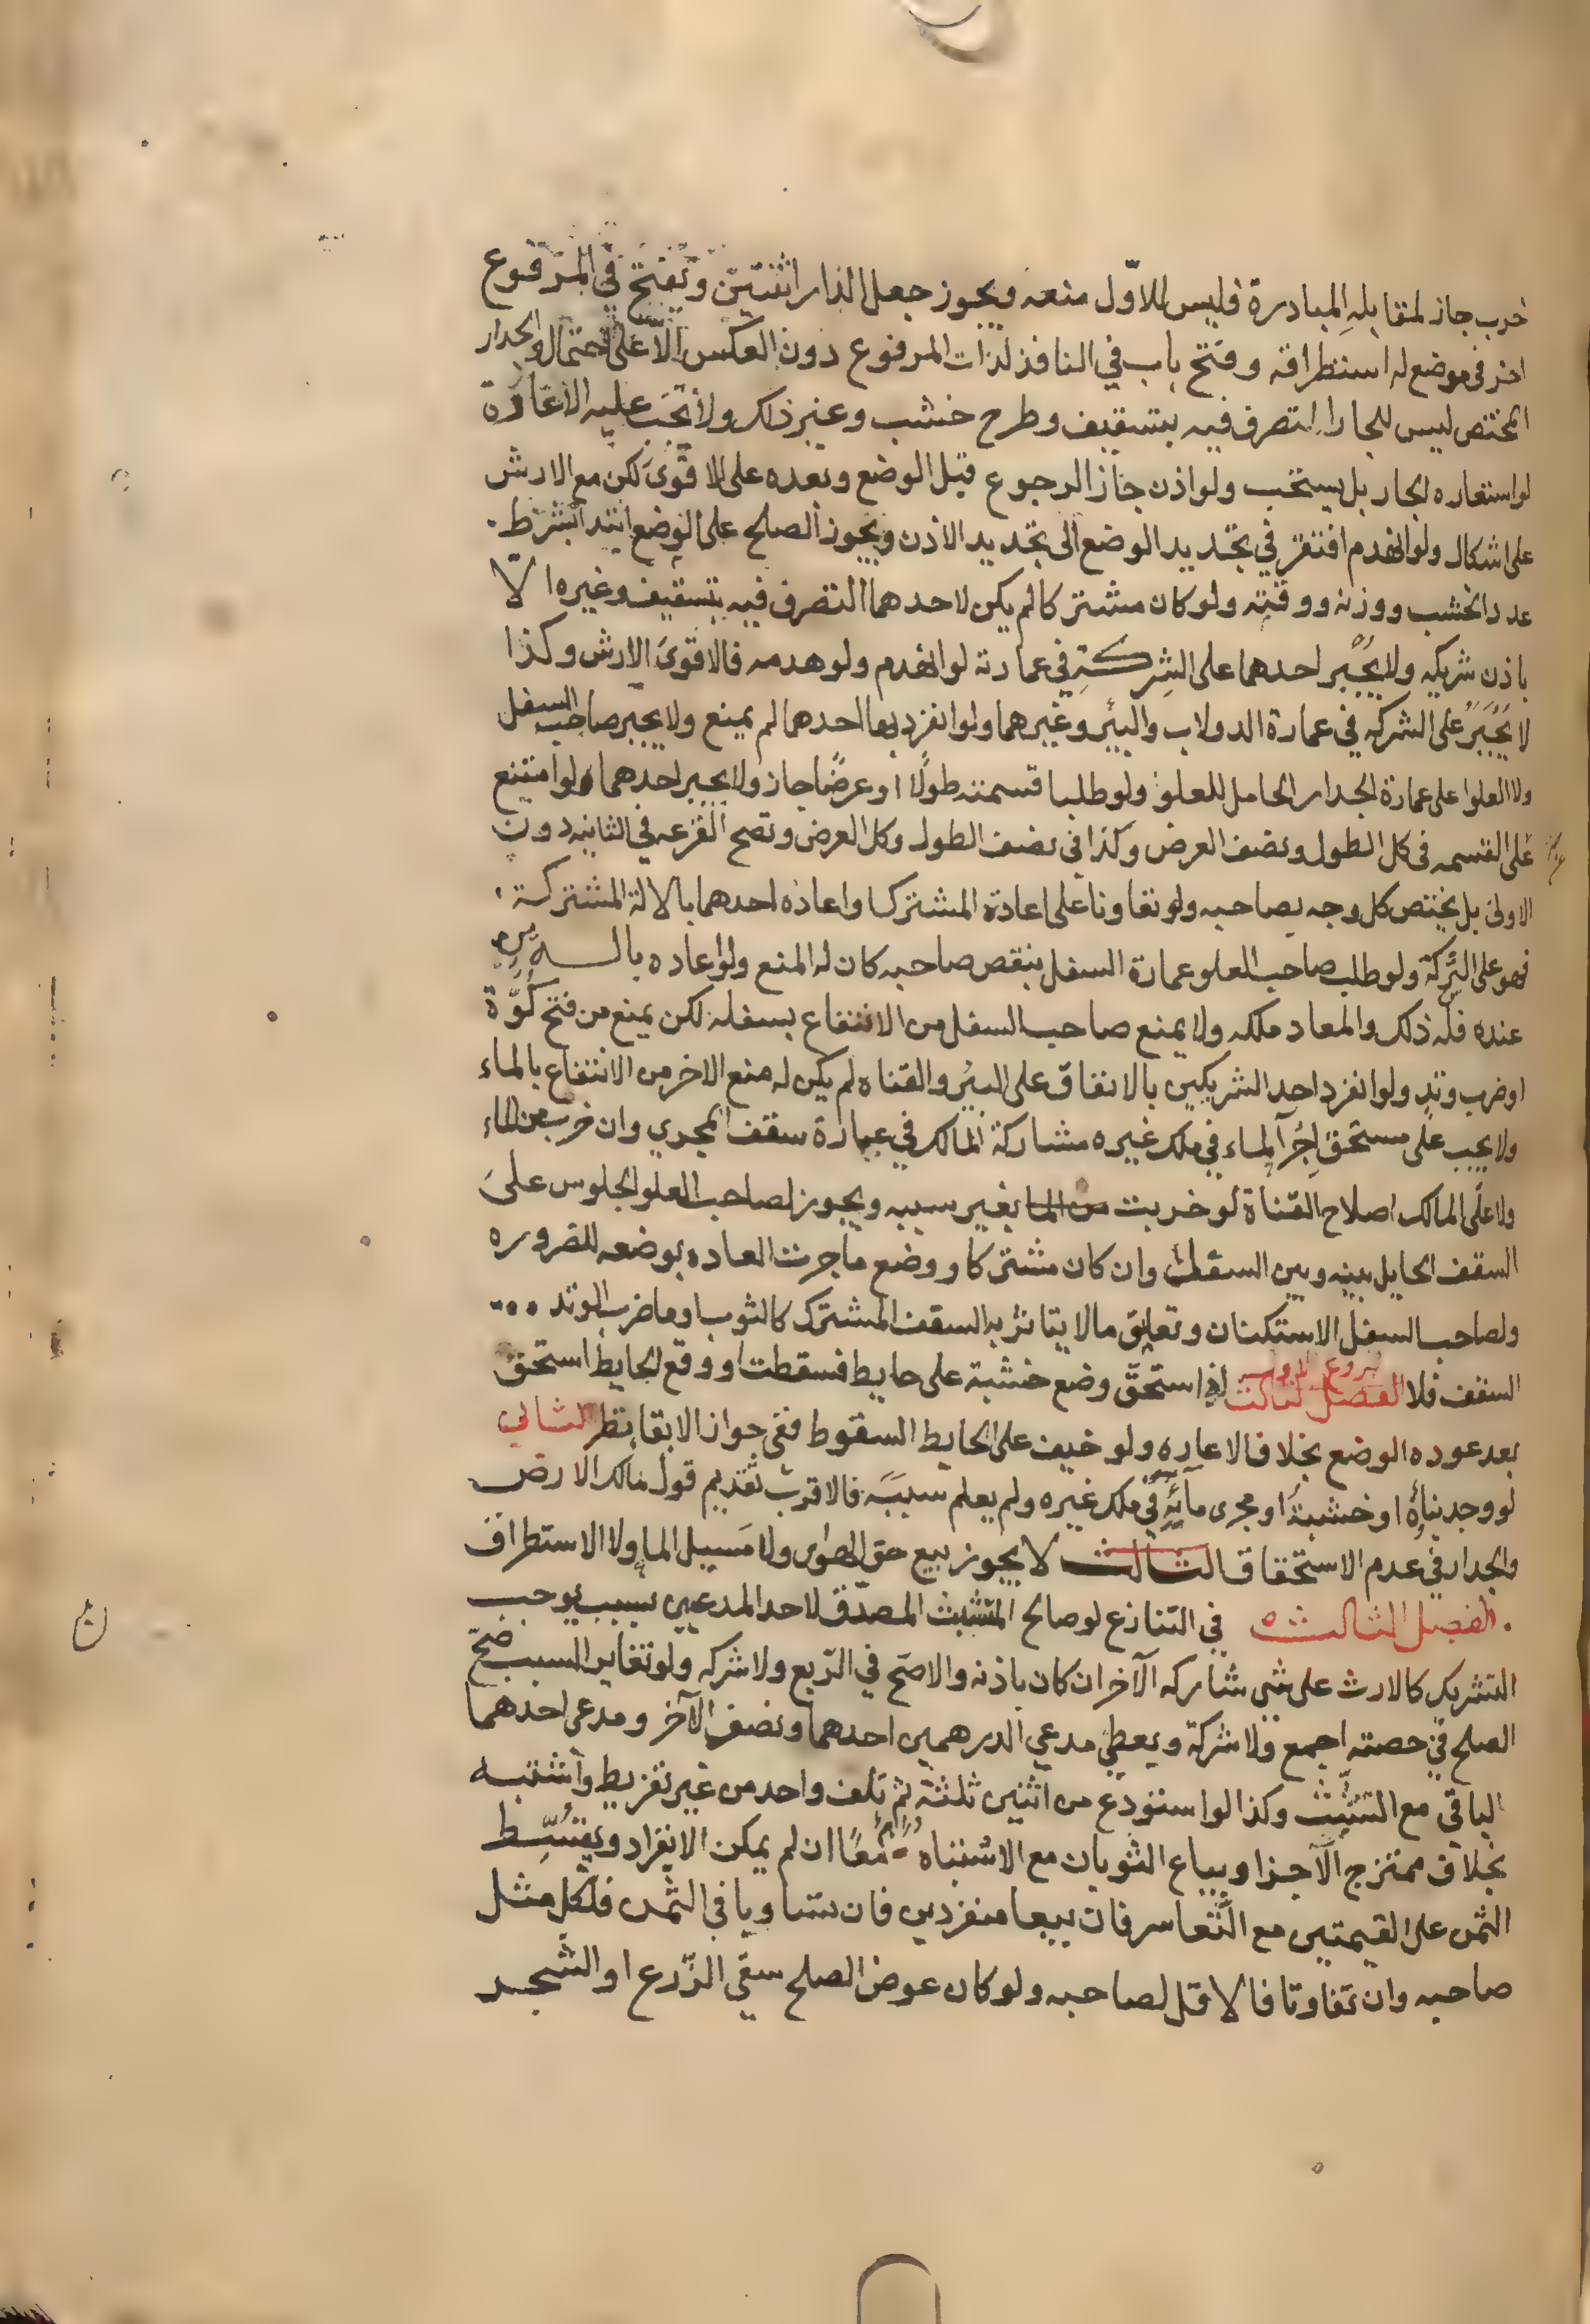 خرب جاز لمقابله المبادرة فليس للاوّل منعه ويجوز جعل الدار اثنتين وتفتح في المرفوع
اخر في موضع له استطراقه وفتح باب في النافذ لذات المرفوع دون العكس الّا على احتمال والجدار
المختص ليس للجار التصرف فيه بتسقيف وطرح خشب وغير ذلك ولا تجب عليه الاعارة
لو استعاره الجار بل يستحب ولو اذن جاز الرجوع قبل الوضع وبعده على الاقوى لكن مع الارش
على اشكال ولو انهدم افتقر في تجديد الوضع الى تجديد الاذن ويجوز الصلح على الوضع ابتدا بشرط
عدد الخشب ووزنه ووقته ولو كان مشتركا لم يكن لاحدهما التصرف فيه بتسقيف وغيره الّا
باذن شريكه ولا يُجْبر احدهما على الشِركةِ في عمارته لو انهدم ولو هدمه فالاقوى الارش وكذا
لا يُجْبَرُ على الشركه في عمارة الدولاب والبئر وغيرهما ولو انفرد بها احدهما لم يمنع ولا يجبر صاحب السفل
ولا العلو على عمارة الجدار الحامل للعلو ولو طلبا قسمته طولًا او عرضًا جاز ولا يجبر احدهما لو امتنع
على القسمه في كل الطول ونصف العرض وكذا في نصف الطول وكل العرض وتصح القرعه في الثانيه دون
الاولى بل يختص كل وجه بصاحبه ولو تعاونا على اعادة المشترك او اعاده احدهما بالالة المشتركة
فهو على الشركة ولو طلب صاحب العلو عمارة السفل بنقض صاحبه كان له المنع ولو اعاده بالة من
عنده فله ذلك والمعاد ملكه ولا يمنع صاحب السفل من الانتفاع بسفله لكن يمنع من فتح كُوّة
او ضرب وتد ولو انفرد احد الشريكين بالانفاق على البئر والقناه لم يكن له منع الاخر من الانتفاع بالماء
ولا يجب على مستحق اجرآ الماء في ملك غيره مشاركة المالك في عمارة سقف المجري وان خرب من الماء
ولا على المالك اصلاح القناة لو خربت من الما بغير سببه ويجوز لصاحب العلو الجلوس على
السقف الحايل بينه وبين السفل وان كان مشتركا ووضع ما جرت العاده بوضعه للضروره
ولصاحب السفل الاستكنان وتعليق ما لا يتاثر به السقف المشترك كالثوب اما ضرب الوتد
السقف فلا الفصل الثالث فروع الاول لو استحقّ وضع خشبة على حايط فسقطت او وقع الحايط استحق
بعد عوده الوضع بخلاف الاعاره ولو خيف على الحايط السقوط ففي جواز الابقا نظر الثاني
لو وجد بناؤه او خشبة او مجرى مآئه في ملك غيره ولم يعلم سببه فالاقرب تقديم قول مالك الارض
والجدار في عدم الاستحقاق الثالث لا يجوز بيع حق الهواى ولا مَسيل الما ولا الاستطراق
الفصل الثالث في التنازع لو صالح المتشبث المصدّق لاحد المدعيين بسبب يوجب
التشريك كالارث على شي شاركه الآخر ان كان باذنه والاصّح في الرّبع ولا شركه ولو تغاير السبب صّح
الصلح في حصته اجمع ولا شركة ويعطي مدعي الدرهمين احدهما ونصف الآخر ومدعي احدهما
الباقي مع التشبّث وكذا لو استودع من اثنين ثلثة ثم تلف واحد من غير تفريط واشتبه
بخلاف ممتزج الآجزا ويباع الثوبان مع الاشتباه معًا ان لم يمكن الانفراد ويقسّط
الثمن على القيمتين مع التّعاسر فان بيعا منفردين فان تساويا في الثمن فلكل مثل
صاحبه وان تفاوتا فالاقل لصاحبه ولو كان عوض الصلح سقي الزّرع او الشجر